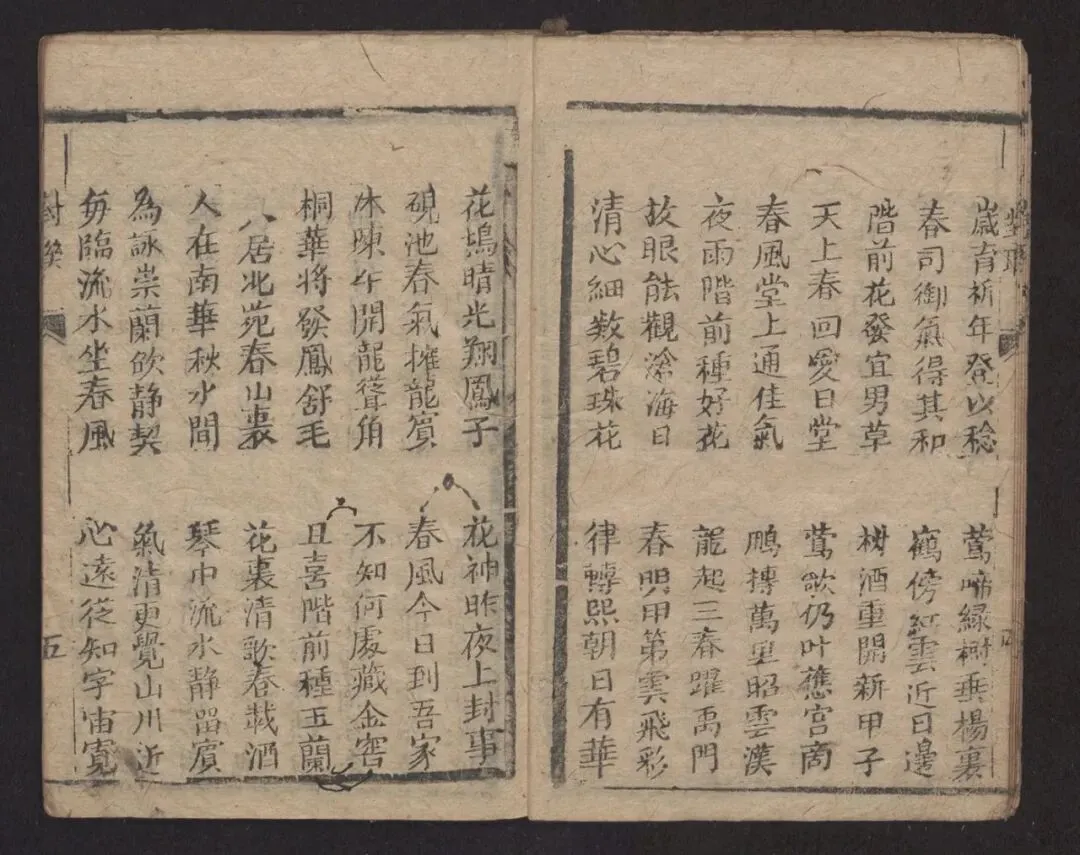 歳育祈年登以稔
春司御氣得其和
階前花發宜男草
天上春回愛日堂
春風堂上通佳氣
夜雨階前種好花
故眼能觀滄海日
清心細数碧珠花
鶯啼緑樹垂楊裏
鶴傍紅雲近日邊
樹酒重開新甲子
鶯歌仍叶應宮商
鵬摶萬里昭雲漢
龍起三春躍禹門
春明甲第雲飛彩
律轉熙朝日有華
花塢晴光翔鳳子
硯池春氣擁龍賓
陳年開龍聳角
桐華將發鳳舒毛
人居北苑春山裏
人在南華秋水間
為詠崇蘭欲静契
毎臨流水坐春風
花神昨夜上封事
春風今日到吾家
不知何處藏金窖
且喜階前種玉蘭
花裏清歌春載酒
琴中流水静留賓
氣清更覺山川近
心遠從知宇宙寛
五